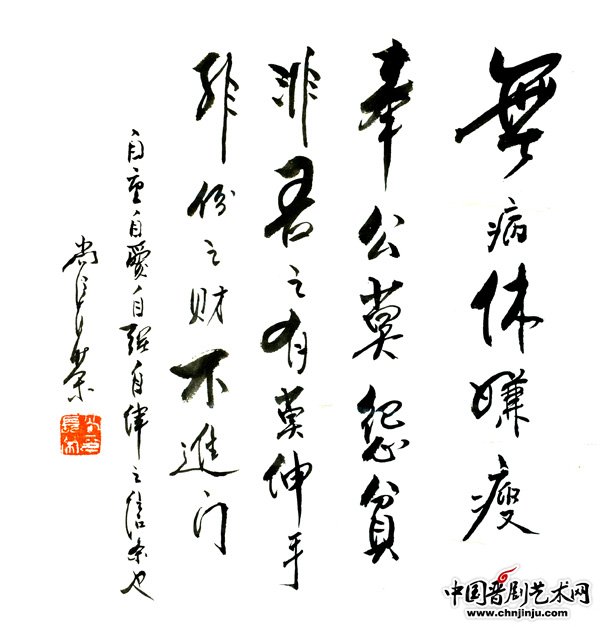 無病休嫌瘦
奉公莫怨貧
非吾之有莫伸手
非份之财不進门
自重自愛自强自律之信条也
尚长荣
中国晋剧艺术网
www.chnjinju.com